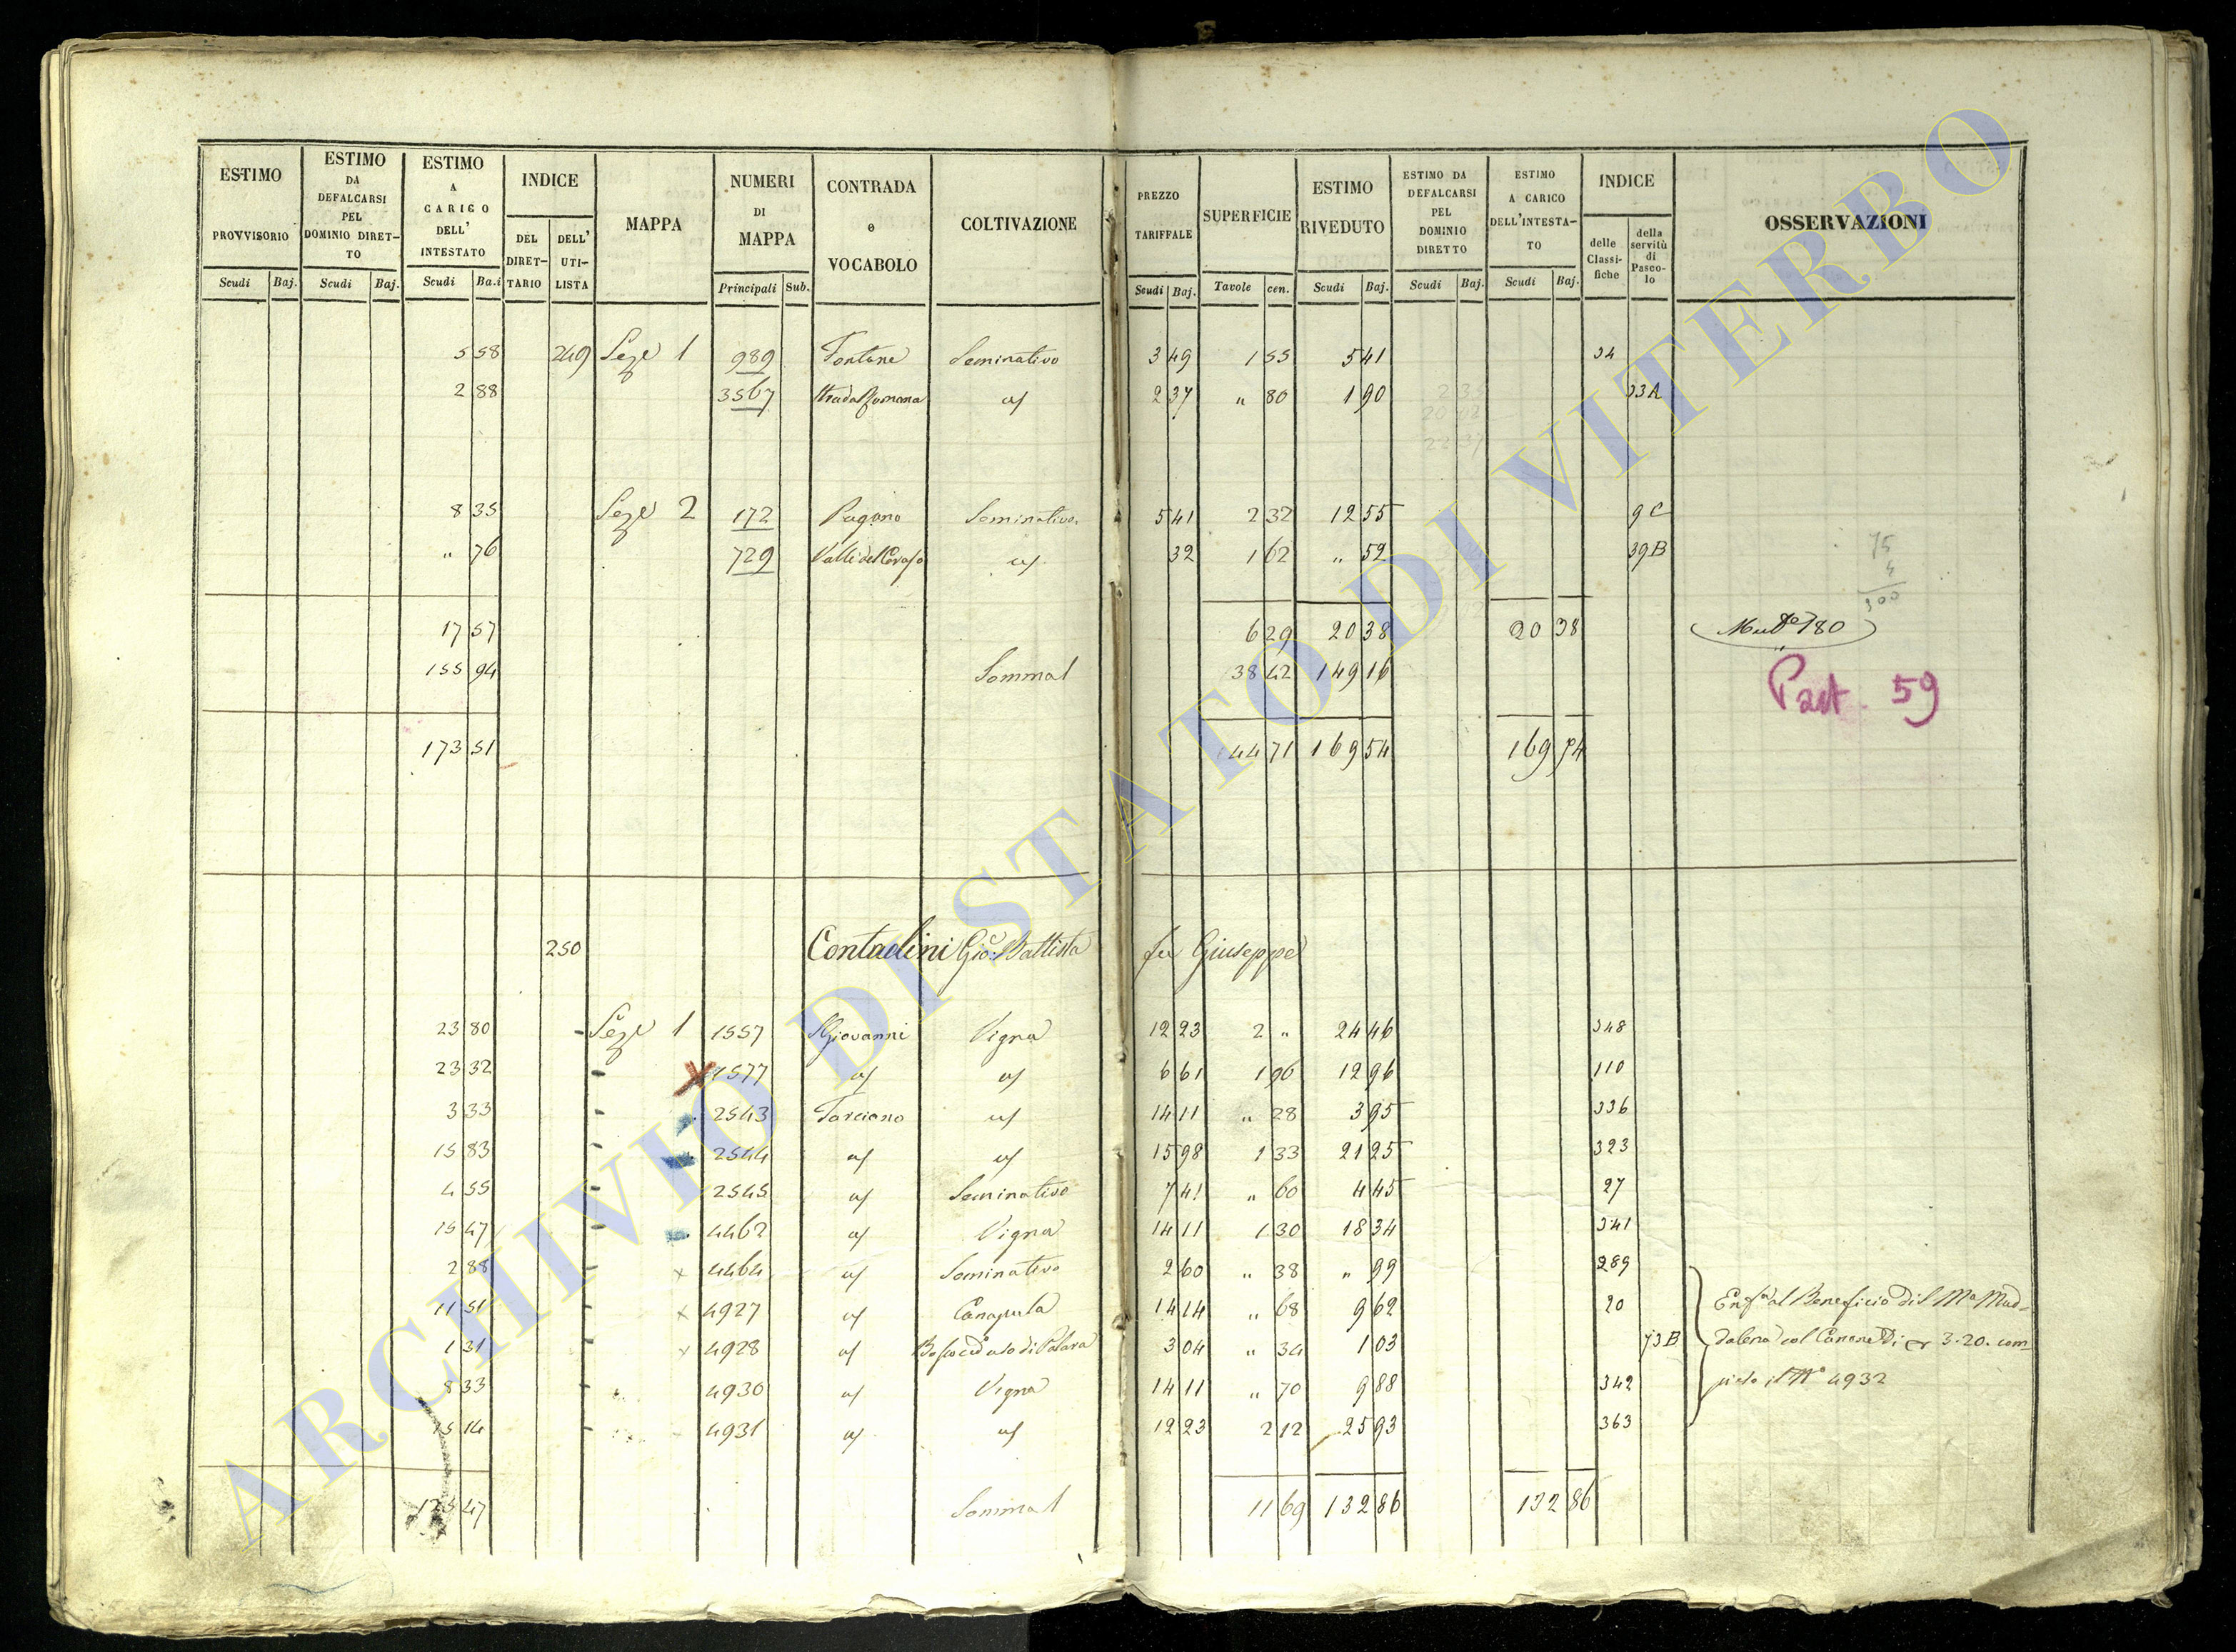 ESTIMO PROVVISORIO Scudi Baj. ESTIMO DA DEFALCARSI PEL DOMINIO DIRETTO Scudi Baj. ESTIMO A CARICO DELL' INTESTATO Scudi Ba.i INDICE DEL DIRETTARIO DELL' UTILISTA MAPPA NUMERI DI MAPPA Principali Sub. CONTRADA o VOCABOLO COLTIVAZIONE PREZZO TARIFFALE Scudi Baj. SUPERFICIE Tavole cen. ESTIMO RIVEDUTO Scudi Baj. ESTIMO DA DEFALCARSI PEL DOMINIO DIRETTO Scudi Baj. ESTIMO A CARICO DELL'INTESTATO Scudi Baj. INDICE delle Classifiche della servitù di Pascolo OSSERVAZIONI
5 58 249 Seze 1 989 Fontane Seminativo 3 49 1 55 5 41 34
2 88 3567 Strada Romana 2 37 " 80 1 90 33A
8 35 Seze 2 172 Pagano Seminativo 5 41 2 32 12 55 9C
" 76 729 32 1 62 " 52 39B
75
4
300
17 57 6 29 20 38 20 38 180
155 94 Somma 38 42 149 16
Part. 59
173 51 44 71 169 54 169 74
250 Contadini Gio: Battista fu Giuseppe
23 80 Seze 1 1557 S Giovanni Vigna 12 23 2 " 24 46 348
23 32 1577 6 61 1 96 12 96 110
3 33 2543 Tarciano 14 11 " 28 3 95 336
15 83 2544 15 98 1 33 21 25 323
4 55 2545 Seminativo 7 41 " 60 4 45 27
15 47 4462 Vigna 14 11 1 30 18 34 341
2 88 4464 Seminativo 2 60 " 38 " 99 289
11 51 4927 Canapula 14 14 " 68 9 62 20 al Beneficio di S Ma Mad=
1 31 4928 3 04 " 34 1 03 73B dalena col Canone di 3.20. com=
8 33 4930 Vigna 14 11 " 70 9 88 342 4932
15 14 4931 12 23 2 12 25 93 363
125 47 Somma 11 69 132 86 132 86
ARCHIVIO DI STATO DI VITERBO